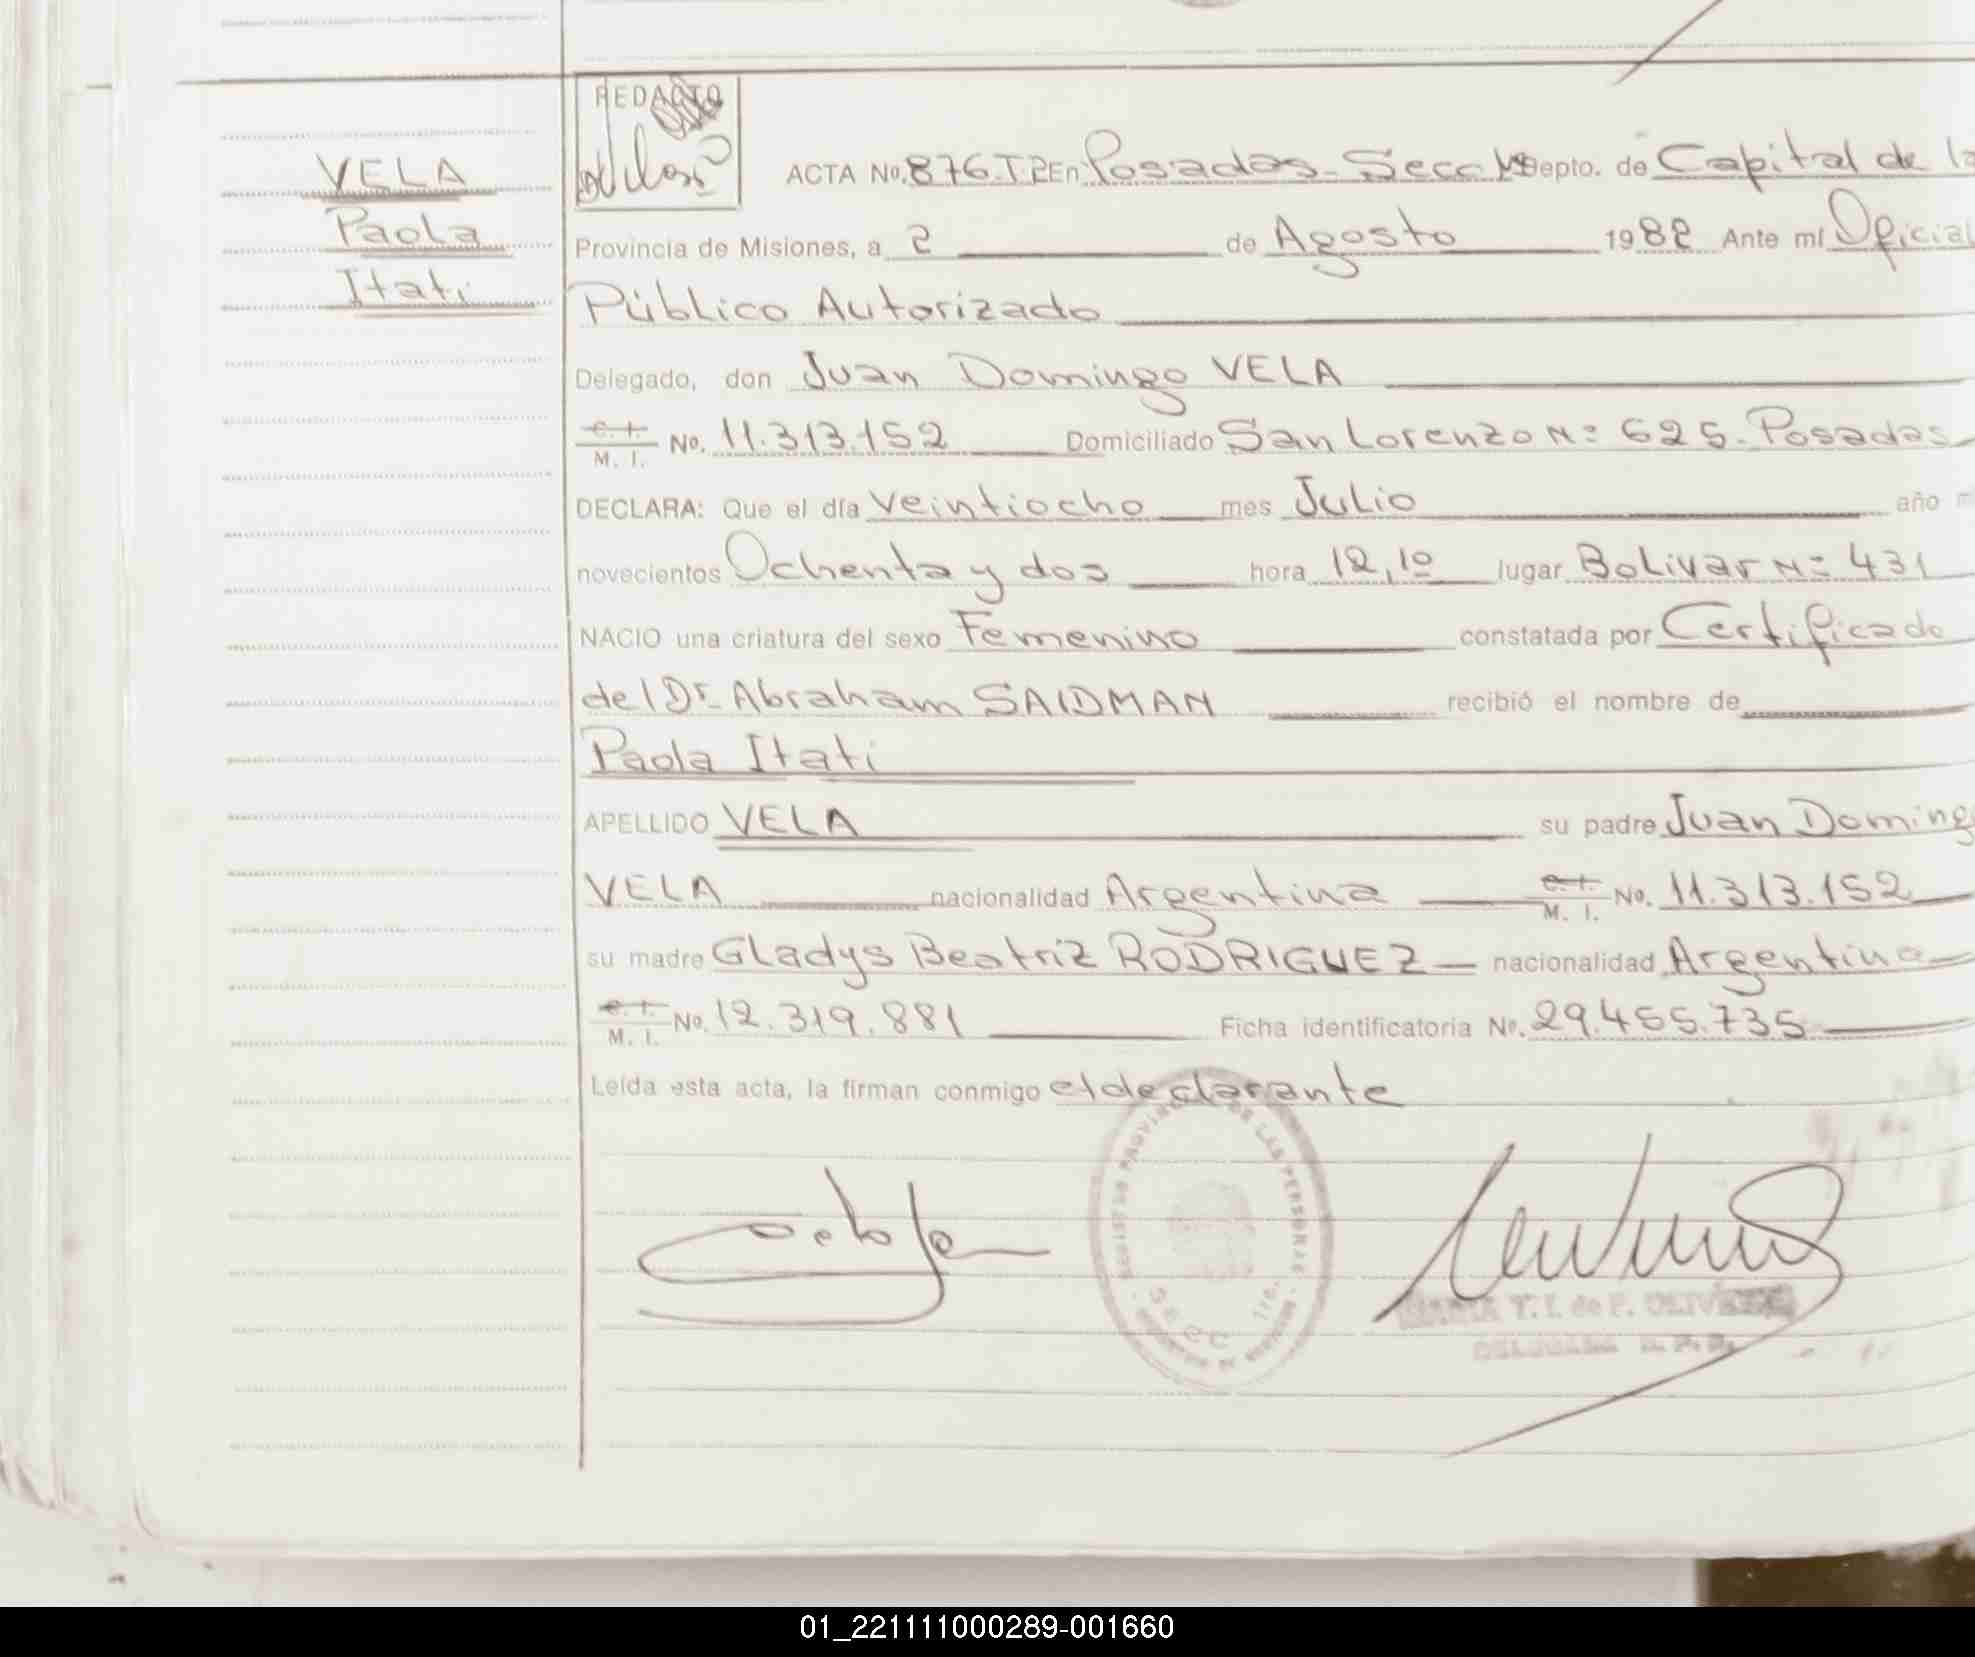 REDACTO
VELA
Paola
Itati
ACTA No. 876.T.2 En Posadas-Secc 1ª Depto. de Capital de la
Provincia de Misiones, a 2 de Agosto 1982 Ante mí Oficial
Público Autorizado
Delegado, don Juan Domingo VELA
C. I. M. I. No. 11.313.152 Domiciliado San Lorenzo Nº 625. Posadas
DECLARA: Que el día veintiocho mes Julio año mi
novecientos Ochenta y dos hora 12,10 lugar Bolivar Nº 431
NACIO una criatura del sexo Femenino constatada por Certificado
del Dr. Abraham SAIDMAN recibió el nombre de
Paola Itati
APELLIDO VELA su padre Juan Doming
VELA nacionalidad Argentina C. I. M. I. No. 11.313.152
su madre Gladys Beatriz RODRIGUEZ nacionalidad Argentina
C. I. M. I. No. 12.319.881 Ficha identificatoria No. 29.455.735
Leída esta acta, la firman conmigo el declarante
REGISTRO PROVINCIAL DE LAS PERSONAS
SECC 1ra.
MARIA T. I. de F. OLIVERA
01_221111000289-001660